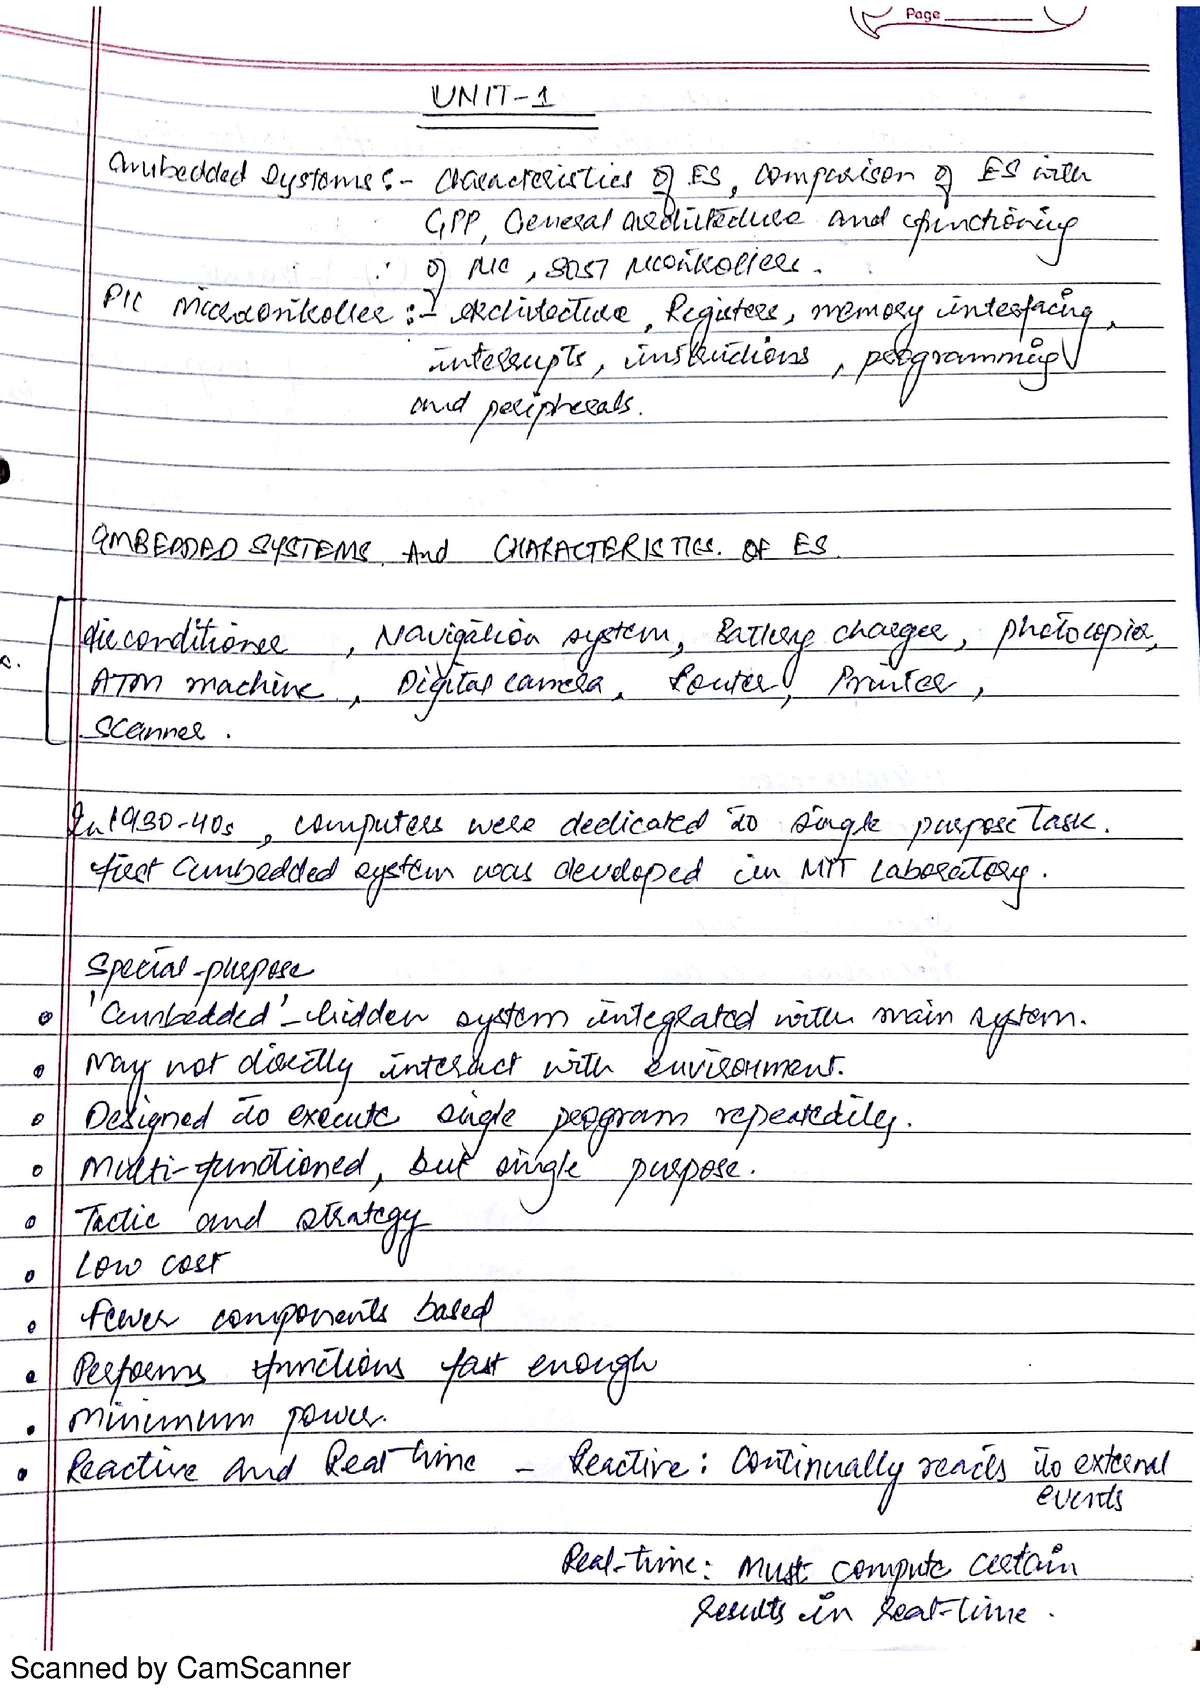 Page
UNIT-1
Embedded Systems:- Characteristics of ES, Comparison of ES with
GPP, General architecture and functioning
of PIC, 8051 Mcontrollers.
PIC Microcontroller:- Architecture, Registers, memory interfacing,
interrupts, instructions, programming
and peripherals.
EMBEDDED SYSTEMS And CHARACTERISTICS. OF ES.
Airconditioner, Navigation system, Battery charger, photocopier,
ATM machine, Digital camera, Router, Printer,
Scanner.
In 1930-40s, computers were dedicated to single purpose Task.
First Embedded system was developed in MIT Laboratory.
Special-purpose
• 'Embedded' - hidden system integrated with main system.
• May not directly interact with environment.
• Designed to execute single program repeatedily.
• Multi-functioned, but single purpose.
• Tactic and strategy
• Low cost
• Fewer components based
• Performs functions fast enough
• Minimum power.
• Reactive and Real time - Reactive: Continually reacts to external
events
Real-time: Must compute certain
results in real-time.
Scanned by CamScanner